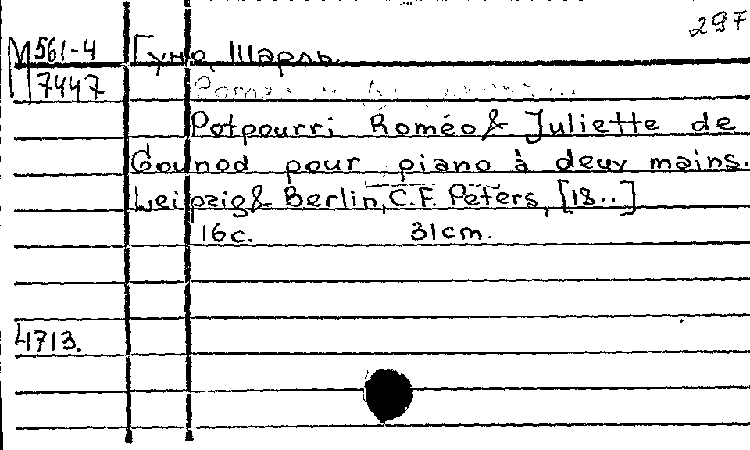 297
М 561-4
7447
Гуно, Шарль.
Potpourri Roméo & Juliette de
Gounod pour piano à deux mains.
Leipzig & Berlin, C.F. Peters, [18..]
16с. 31cm.
4713.